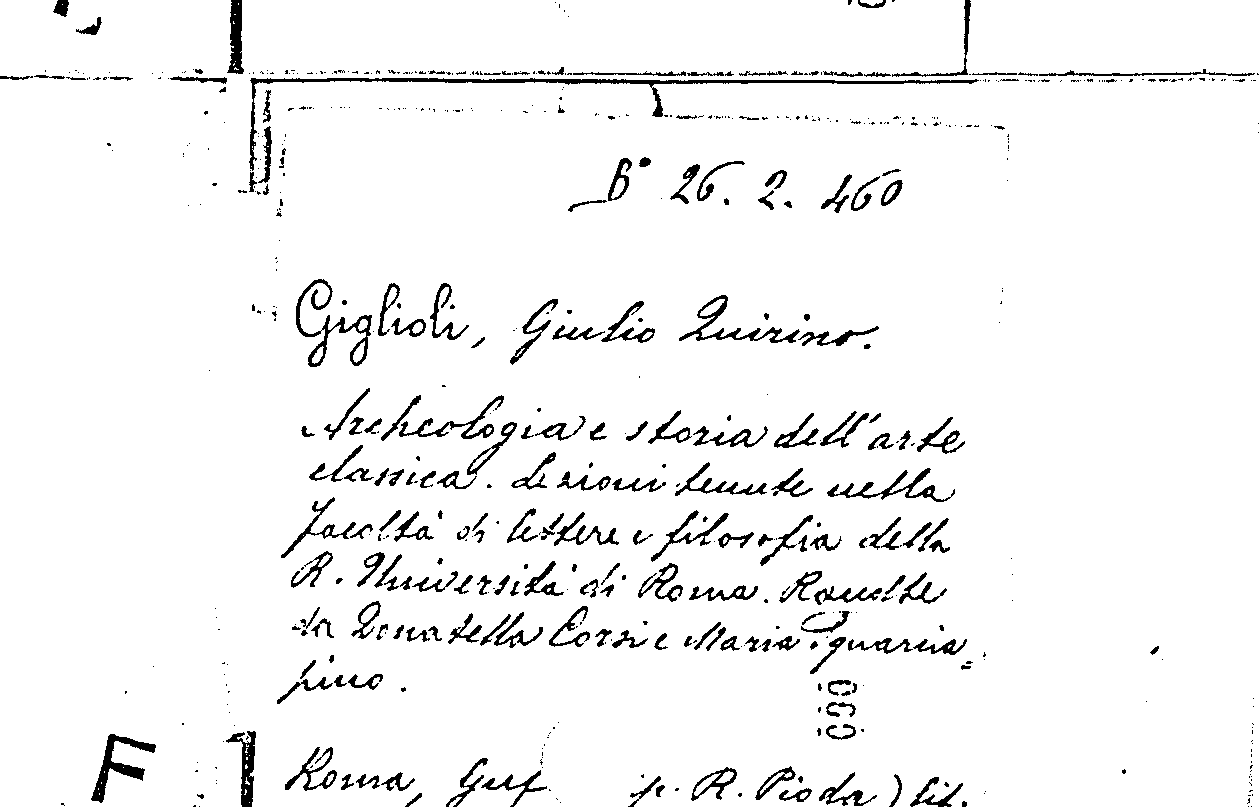 B° 26. 2. 460
Giglioli, Giulio Quirino.
Archeologia e storia dell'arte
classica. Lezioni tenute nella
facoltà di lettere e filosofia della
R. Università di Roma. Raccolte
da Donatella Corsi e Maria Squarcia=
pino.
Roma, Guf p. R. Pioda) lit.
F